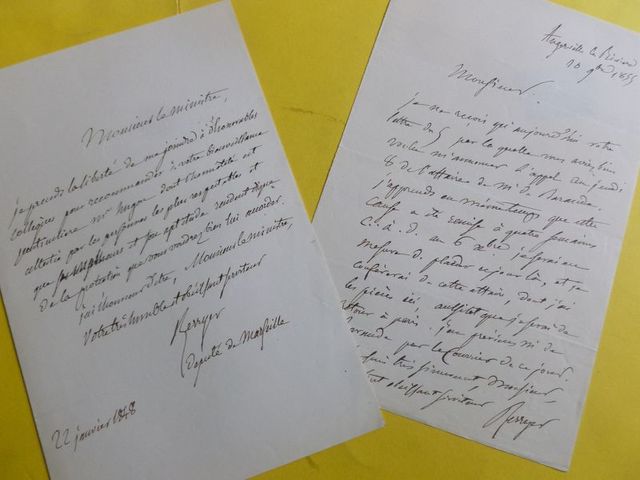 Monsieur le ministre,
je prends la liberté de me joindre à d'honorables
collègues pour recommander à votre bienveillance
particulière Mr Hugon dont l'honnêteté est
attestée par les personnes les plus respectables et
que son expérience et son aptitude rendent digne
de la protection que vous voudrez bien lui accorder.
j'ai l'honneur d'être, Monsieur le ministre,
votre très humble et obéissant serviteur
Berryer
Député de Marseille
22 janvier 1848
Angerville la Rivière
10 9bre 1855
Monsieur.
je ne reçois qu'aujourd'hui votre
lettre du 5 par laquelle vous aviez bien
voulu m'annoncer l'appel au jeudi
8 de l'affaire de Mr de
j'apprends en même temps que cette
cause a été remise à quatre semaines
c. à. d. au 6 Xbre. je serai en
mesure de plaider ce jour là, et je
conférerai de cette affaire, dont j'ai
les pièces ici aussitôt que je serai de
retour à Paris. j'en préviens Mr de
par le Courrier de ce jour.
je suis très sincèrement Monsieur,
obéissant serviteur
Berryer